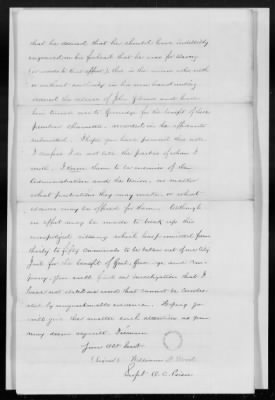 that he desired that he should have indelibly
engraven on his forhead that he was for slavery
(or words to that effect), this is the man who with
or without authority in his own handwriting
the slaves of John
been turned over to for the benefit of these
peculiar characters according to the affidavits
submitted. I hope you have patience this note
I confess I do not like the parties of whom I
write. I know them to be enemies of the
Administration and the Union, no matter
what protestations they may make, or what
may be offered for them. Although
an effort may be made to break up this
missing which has furnished from
thirty to fifty Criminals to be taken out of our City
Jail for the benefit of
you will find on investigation that I
have not stated one word that cannot be corrobo-
rated by unquestionable evidence. Hoping you
will give this matter such attention as you
may deem requisit. I remain
Your Obt Servt
(Signed) William P. Wood
Supt O. C. Prison